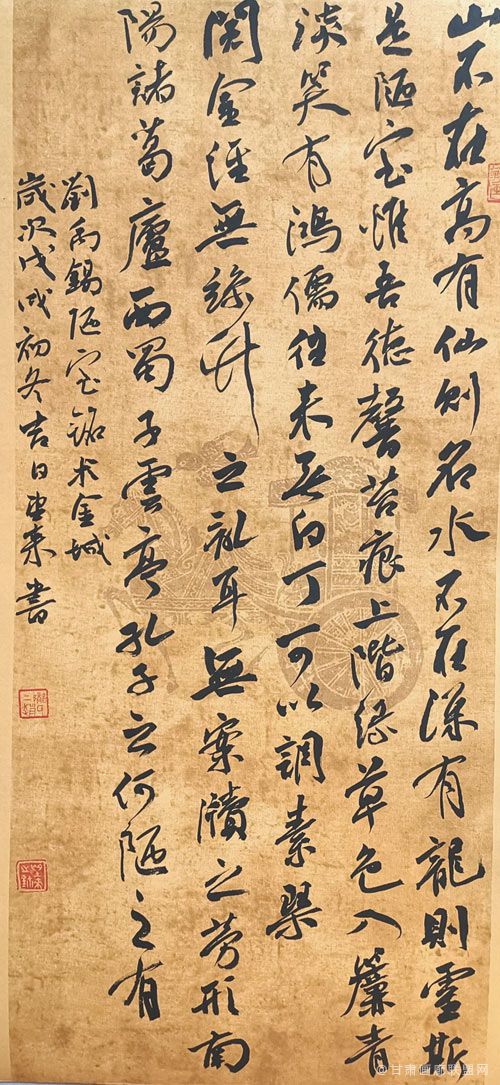 山不在高有仙則名水不在深有龍則靈斯
是陋室惟吾德馨苔痕上階綠草色入簾青
談笑有鴻儒往來无白丁可以調素琴
閱金經無絲竹之亂耳無案牘之勞形南
陽諸葛廬西蜀子雲亭孔子云何陋之有
劉禹錫陋室銘金城
歲次戊戌初冬吉日來書
@甘肃画廊联盟网